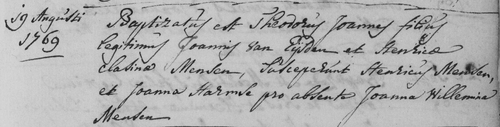 19 Augusti
1769
Baptizatus est Theodorus Joannes filius
legitimus Joannis van Eijden et Henricæ
clasinæ Mensen, Susceperunt Henricus Mensen,
et Joanna Harmse pro absente Joanna Willemina
Mensen